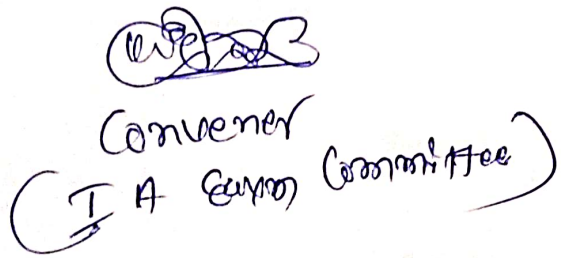 Convener
(I A Exam Committee)